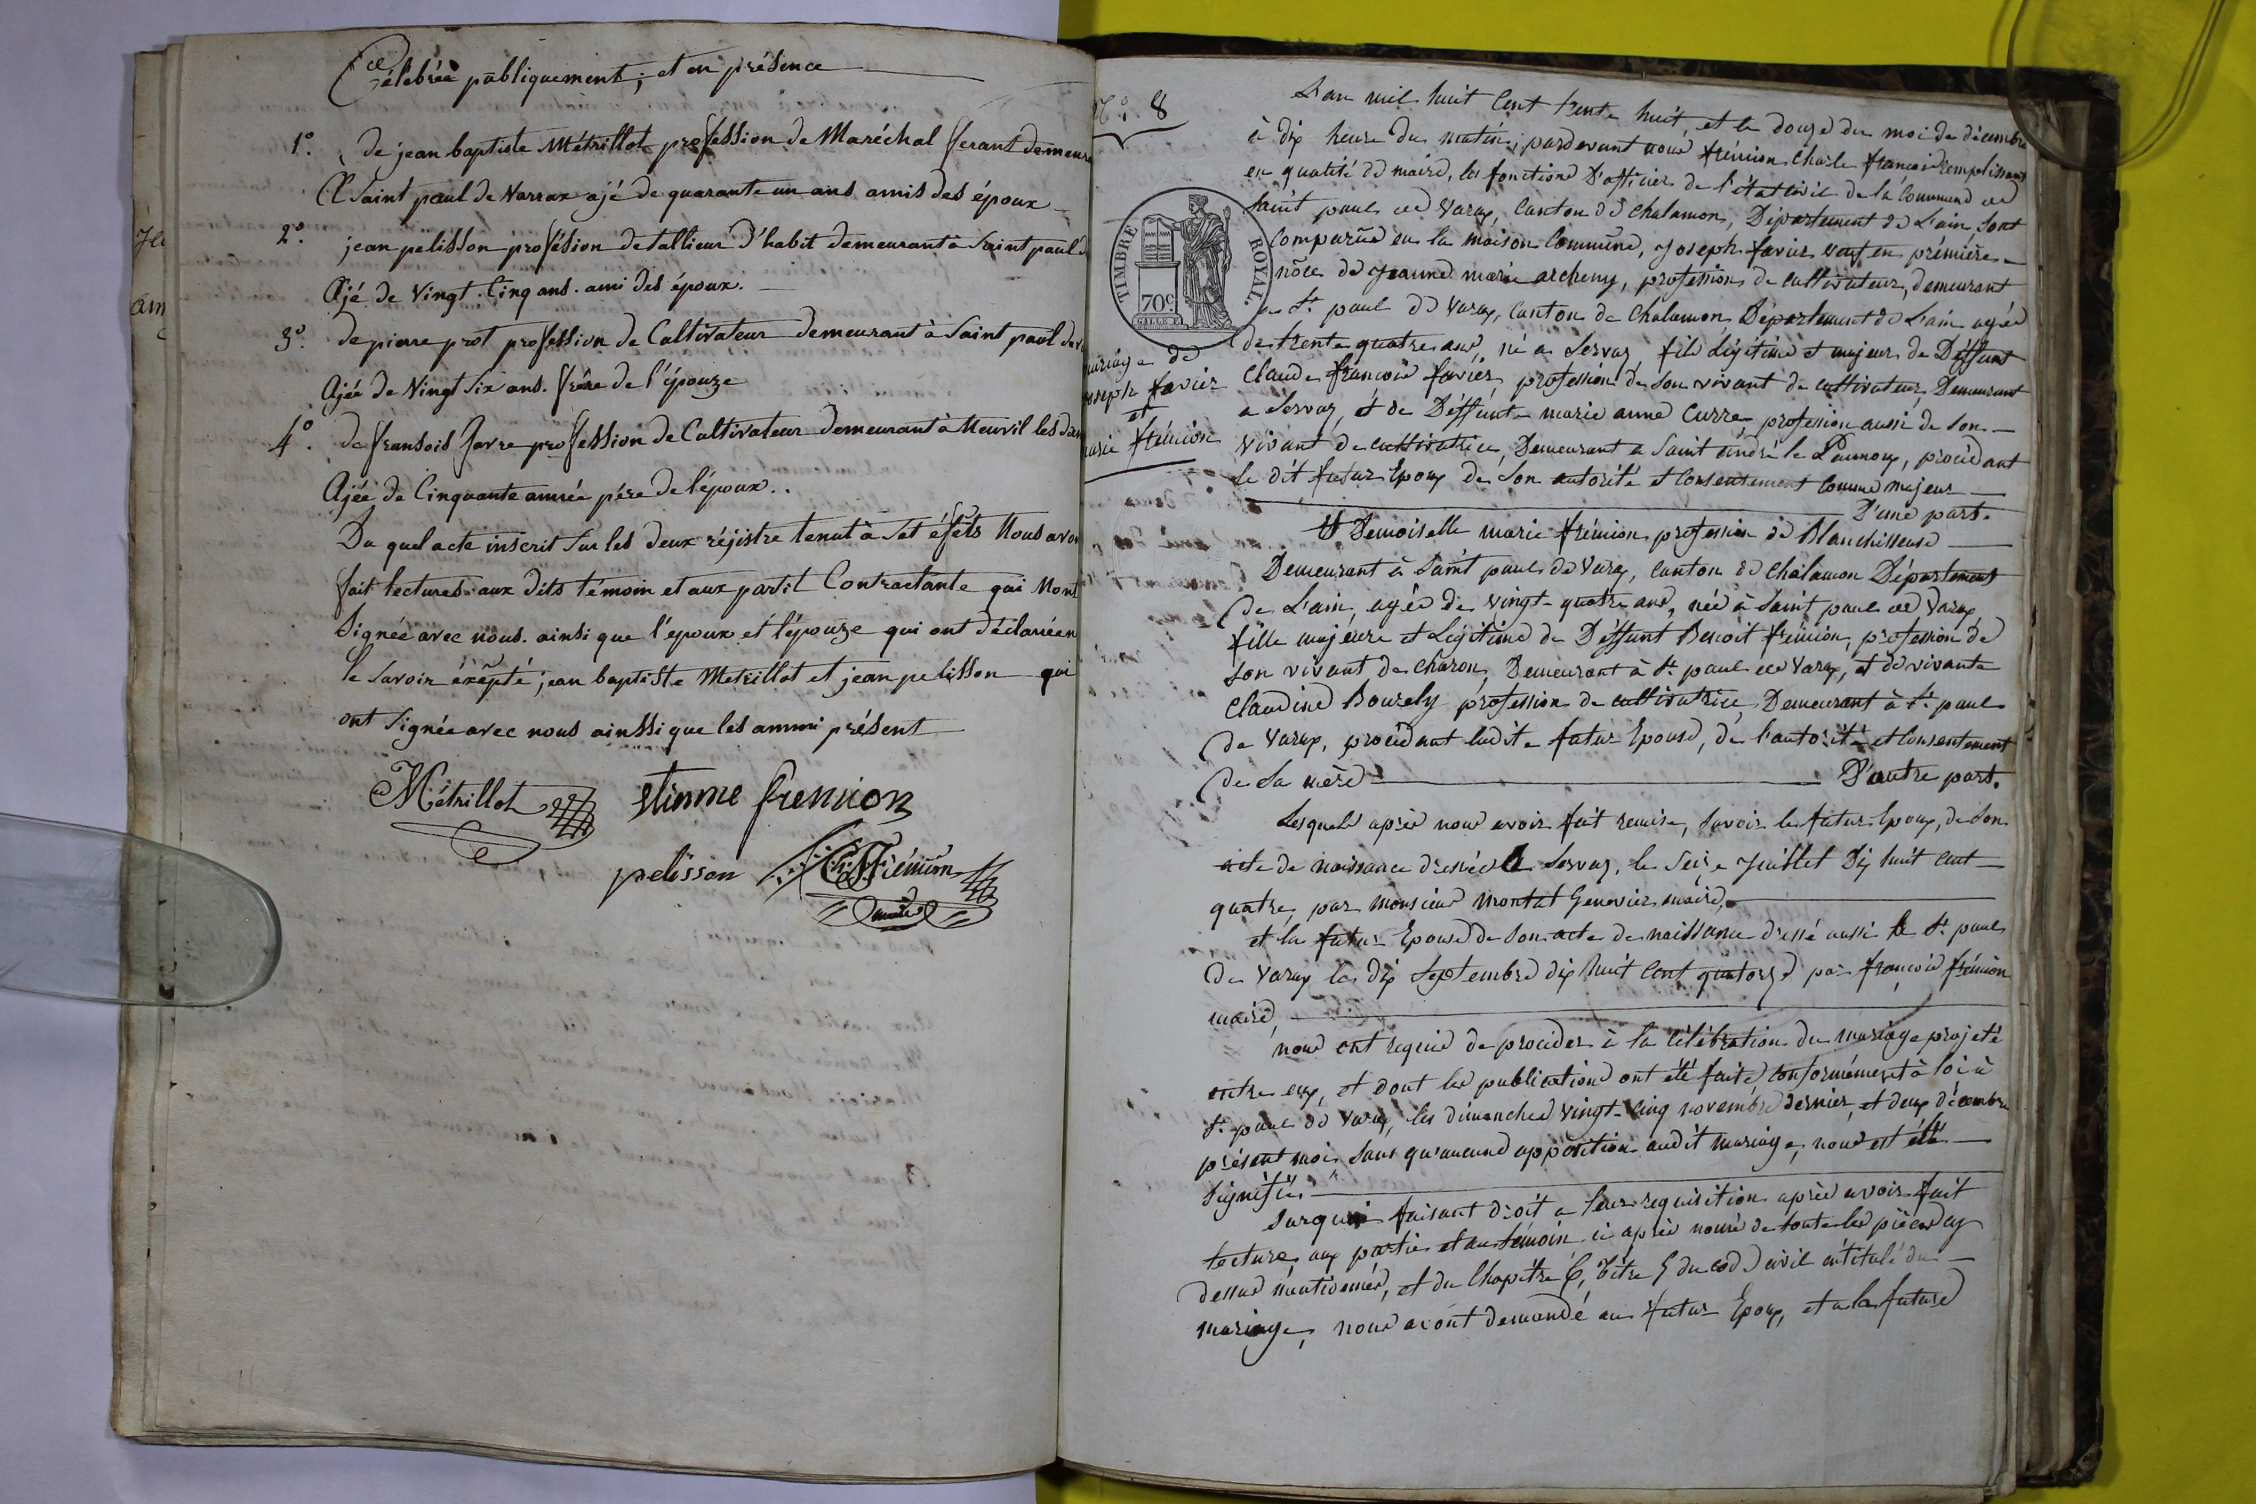 Célébrée publiquement; et en présence
1.° de jean baptiste Métrillot profession de Maréchal ferant demeur
a Saint paul de Varrax ajé de quarante un ans amis des époux
2.° jean pelisson profésion detallieur d'habit demeurant à Saint paul d
Ajé de Vingt. Cinq ans. ami des époux.
3.° de pierre prot profession de Caltivateur demeurant à Saint paul de
Ajée de Vingt Six ans. frère de l'épouze
4.° de fransois Favre profession de Caltivateur demeurant à Neuvil les
Ajée de Cinquante année père de l'époux..
Du quel acte inscrit Sur les deux réjistre tenut à Set éfets Nous avon
fait lectures aux dits témoin et aux partit Contractante qui Nont
Signée avec nous. ainsi que l'epoux et l'épouze qui ont déclarée n
le Savoir éxépté jean baptiste Metrillot et jean pelisson qui
ont Signée avec nous ainssi que les ammi présent
Métrillot etienne frenion
pelisson Frénion
maire
N.° 8
L'an mil huit Cent trente huit, et le douze du moi de décembre
à dix heure du matin, pardevant nous frénion Charle francois remplissant
en qualité de maire, les fonctions d'officier de l'état civil de la Commune de
Saint paul de Varax, Canton de Chalamon, Département de L'ain, Sont
TIMBRE ROYAL.
70c.
Comparûs en la maison Commune, Joseph favier veuf en première
nôce de Jeanne marie archeny, profession de cultivateur, demeurant
a St. paul de Varax, Canton de Chalamon, Département de L'ain agée
de trente quatre ans, né a Servas, fils Légitime et majeur de Deffunt
mariage de
Joseph favier
et
marie frénion
Claude francois favier, profession de Son vivant de cultivateur, Demeurant
a Servas, et de Déffunte marie anne Curre, profession aussi de Son
vivant de cultivatrice, Demeurant a Saint andré le Panoux, procédant
le dit futur Epoux de Son autorité et Consentement Comme majeur
D'une part.
Et Demoiselle marie frénion profession de Blanchisseuse
Demeurant à Saint paul de Varax, Canton de Chalamon Département
de L'ain, agée de vingt-quatre ans, née à Saint paul de Varax,
fille majeure et Légitime de Deffunt Benoit frénion, profession de
Son vivant de charon, Demeurant à St. paul de Varax, et de vivante
Claudine Bourely profession de cultivatrice, Demeurant à St. paul
de Varax, procédant ladite futur Epouse, de l'autorité et Consentement
de Sa mère D'autre part.
Lesquels après nous avoir fait remise, Savoir le futur Epoux, de Son
acte de naissance dressé a Servas, le Seize Juillet Dix huit Cent
quatre, par Monsieur Montat Genevier maire,
et la futur Epouse de Son acte de naissance dressé aussi a St. paul
de Varax le dix Septembre dix huit Cent quatorze par françois frénion
maire,
nous ont requis de procéder à la Célébration du mariage projeté
entre eux, et dont les publications ont été faites Conformément à loi à
St. paul de Varax, les dimanches vingt-Cinq novembre dernier, et deux décembre
présent moi, Sans qu'aucune opposition audit mariage, nous est été
Signifié.
Surquoi faisant droit a leur requisition après avoir fait
lecture, aux parties et au témoin ci après nommé de toutes les pièces cy
dessus mentionnés, et du Chapitre 6, Titre 5 du code civil intitulé du
mariage, nous avont demandé au futur Epoux, et a la future